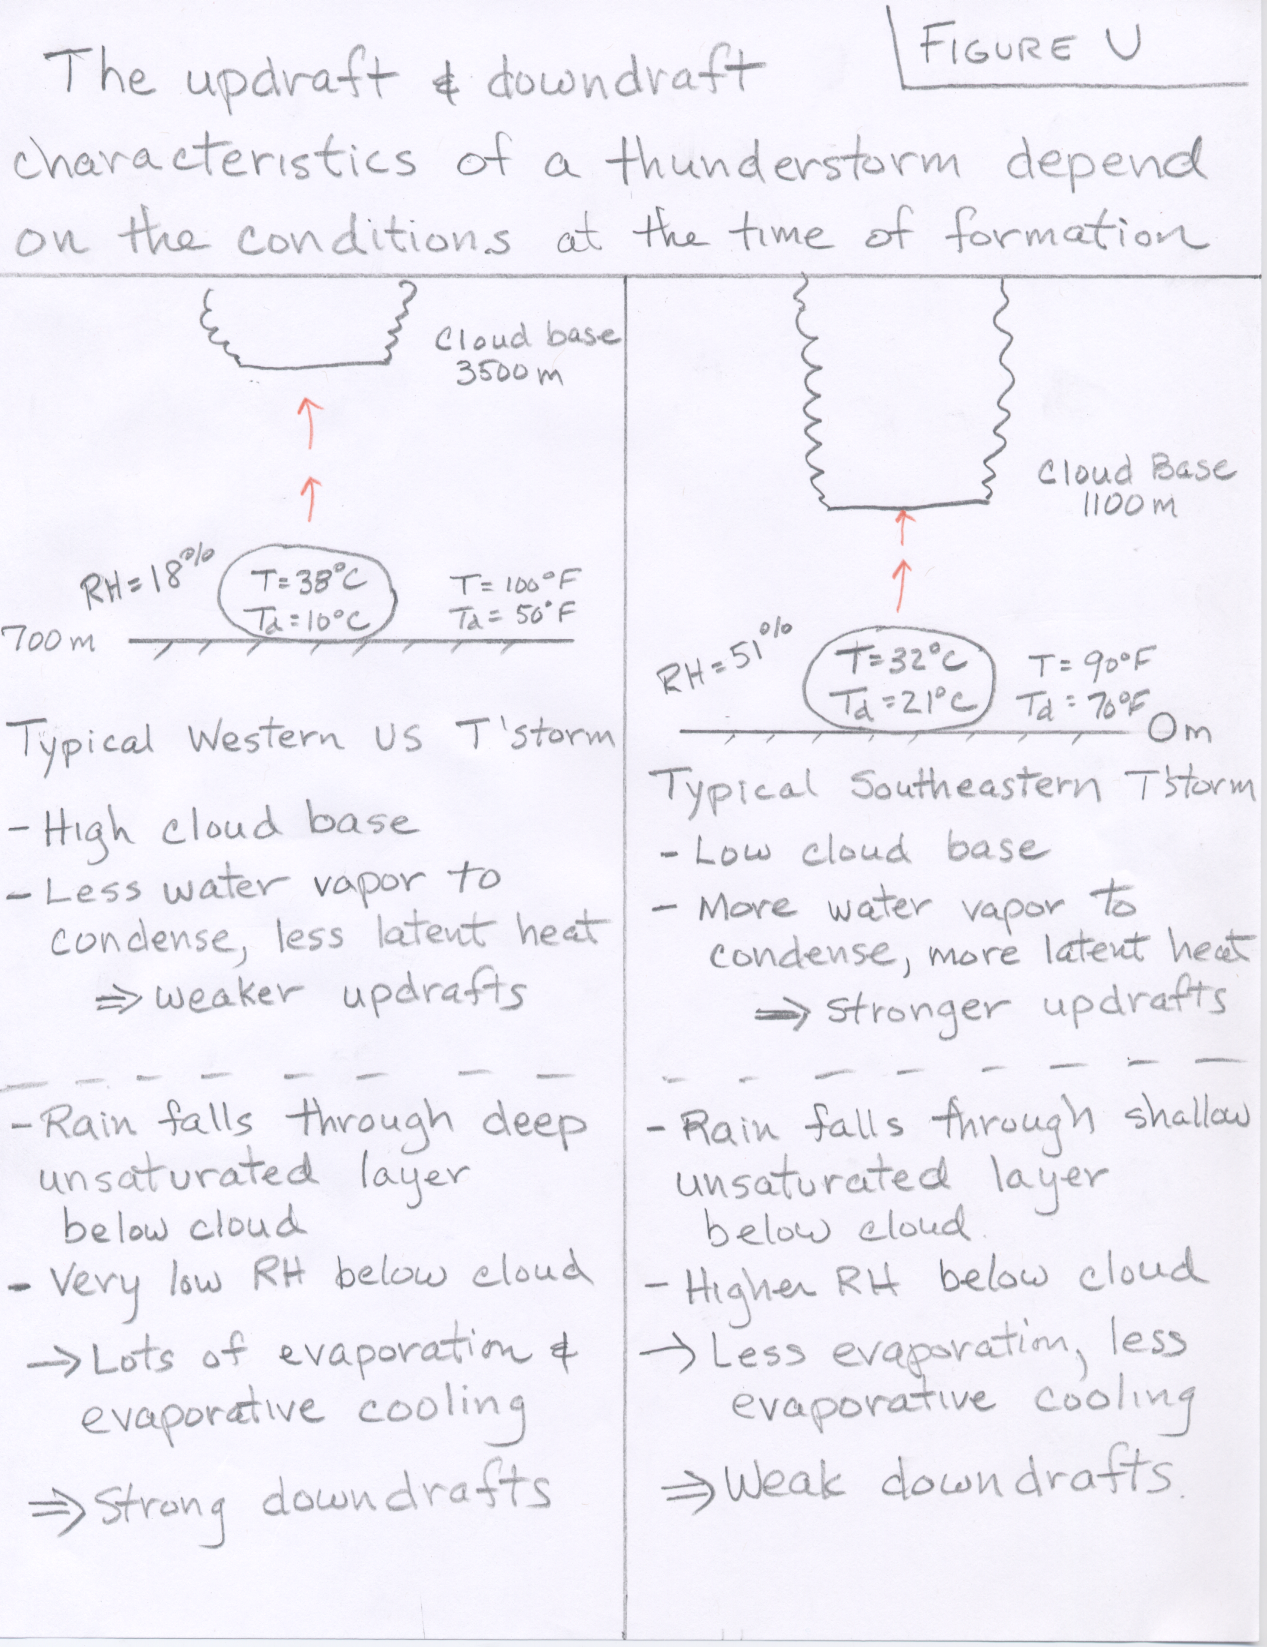 FIGURE U
The updraft & downdraft
characteristics of a thunderstorm depend
on the conditions at the time of formation
Cloud base
3500 m
RH = 18%
T = 38°C
Td = 10°C
T = 100°F
Td = 50°F
700 m
Typical Western US T'storm
- High cloud base
- Less water vapor to
condense, less latent heat
⇒ weaker updrafts
- Rain falls through deep
unsaturated layer
below cloud
- Very low RH below cloud
→ Lots of evaporation &
evaporative cooling
⇒ Strong downdrafts
Cloud Base
1100 m
RH = 51%
T = 32°C
Td = 21°C
T = 90°F
Td = 70°F
0 m
Typical Southeastern T'storm
- Low cloud base
- More water vapor to
condense, more latent heat
⇒ stronger updrafts
- Rain falls through shallow
unsaturated layer
below cloud.
- Higher RH below cloud
→ Less evaporation, less
evaporative cooling
⇒ Weak downdrafts.